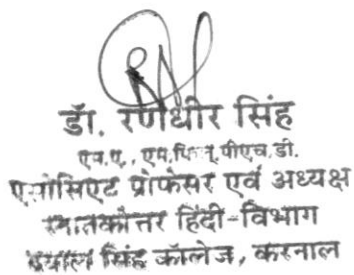 डॉ. रणधीर सिंह
एम.ए., एम.फिल्, पीएच.डी.
एसोसिएट प्रोफेसर एवं अध्यक्ष
स्नातकोत्तर हिंदी-विभाग
दयाल सिंह कॉलेज, करनाल